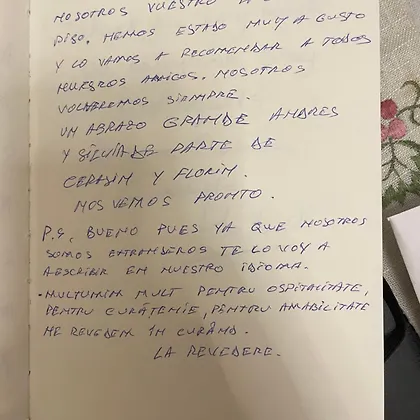 NOSOTROS VUESTRO
PISO, HEMOS ESTADO MUY A GUSTO
Y LO VAMOS A RECOMENDAR A TODOS
NUESTROS AMIGOS. NOSOTROS
VOLVEREMOS SIEMPRE.
UN ABRAZO GRANDE ANDRES
Y SILVIA DE PARTE DE
Y FLORIN.
NOS VEMOS PRONTO.
P.S, BUENO PUES YA QUE NOSOTROS
SOMOS EXTRANJEROS TE LO VOY A
ESCRIBIR EN NUESTRO IDIOMA.
- MULTUMIM MULT PENTRU OSPITALITATE,
PENTRU CURĂTENIE, PENTRU AMABILITATE
NE REVEDEM ÎN CURÂND.
LA REVEDERE.